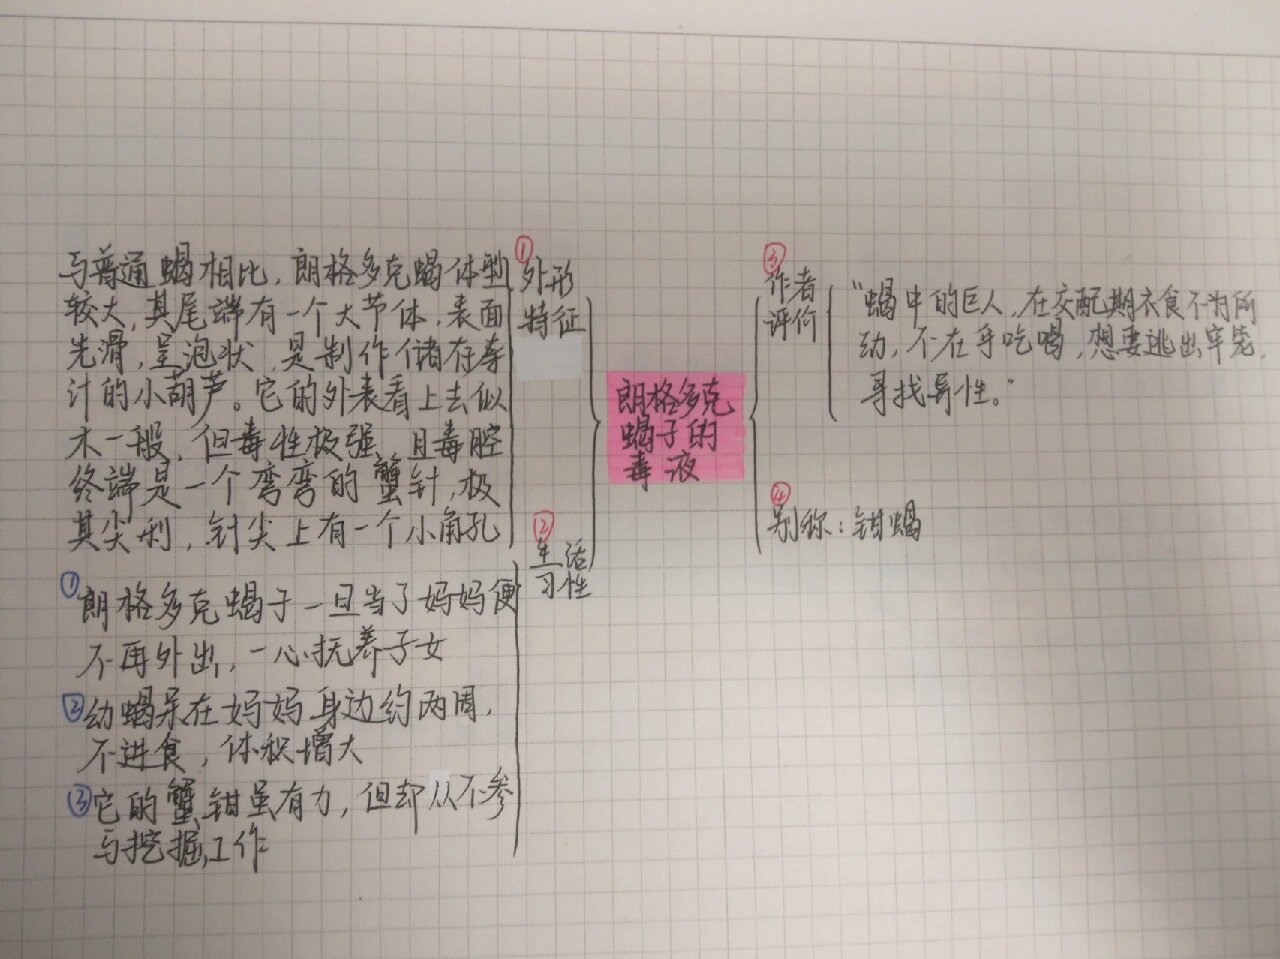 朗格多克
蝎子的
毒液
①
外形
特征
与普通蝎相比，朗格多克蝎体型
较大，其尾端有一个大节体，表面
光滑，呈泡状，是制作储存毒
汁的小葫芦。它的外表看上去似
木一般，但毒性极强，且毒腔
终端是一个弯弯的蟹针，极
其尖利，针尖上有一个小角孔
②
生活
习性
①朗格多克蝎子一旦当了妈妈便
不再外出，一心抚养子女
②幼蝎呆在妈妈身边约两周，
不进食，体积增大
③它的蟹钳虽有力，但却从不参
与挖掘工作
③
作者
评价
“蝎中的巨人，在交配期衣食不为所
动，不在乎吃喝，想要逃出牢笼，
寻找异性。”
④
别称：钳蝎